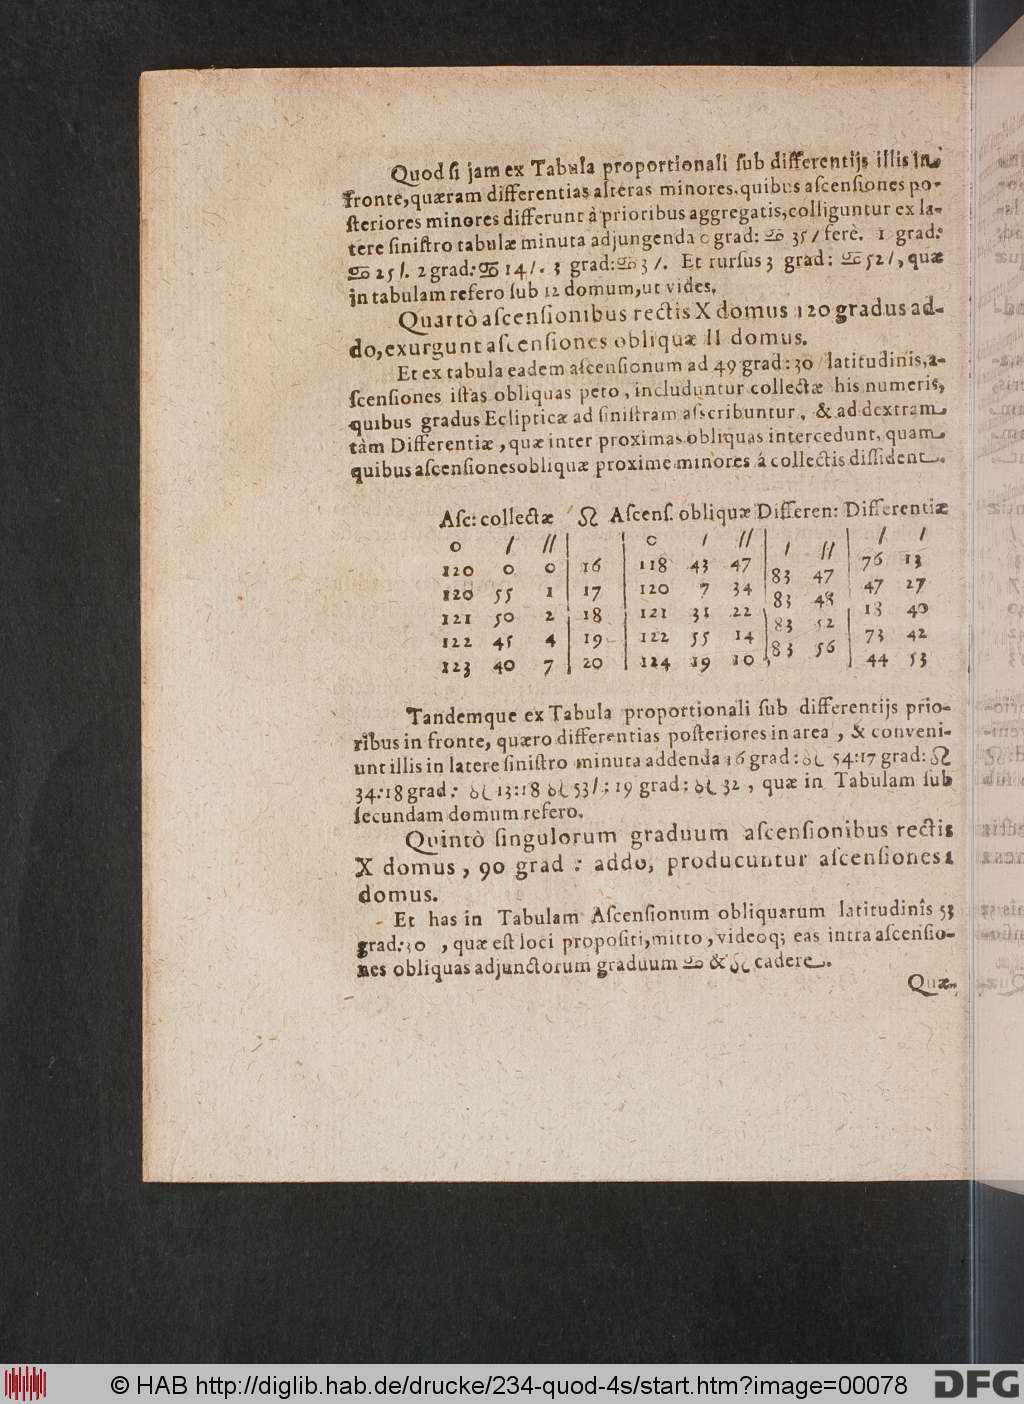 Quod ſi jam ex Tabula proportionali ſub differentijs illis in
fronte, quæram differentias aſteras minores. quibus aſcenſiones po-
ſteriores minores differunt à prioribus aggregatis, colliguntur ex la-
tere ſiniſtro tabulæ minuta adjungenda 0 grad: ♋ 35/ ferè. 1 grad:
♋ 25/. 2 grad: ♋ 14/. 3 grad: ♋ 3/. Et rurſus 3 grad: ♋ 52/, quæ
in tabulam refero ſub 12 domum, ut vides.
Quartò aſcenſionibus rectis X domus 120 gradus ad-
do, exurgunt aſcenſiones obliquæ II domus.
Et ex tabula eadem aſcenſionum ad 49 grad: 30 / latitudinis, a-
ſcenſiones iſtas obliquas peto, includuntur collectæ his numeris,
quibus gradus Eclipticæ ad ſiniſtram aſscribuntur, & ad dextram
tàm Differentiæ, quæ inter proximas obliquas intercedunt, quam
quibus aſcenſiones obliquæ proxime minores á collectis diſſident.
Aſc: collectæ ♌ Aſcenſ. obliquæ Differen: Differentiæ
0 / // | | 0 / // | / // | / /
120 0 0 | 16 | 118 43 47 | 83 47 | 76 13
120 55 1 | 17 | 120 7 34 | 83 48 | 47 27
121 50 2 | 18 | 121 31 22 | 83 52 | 18 40
122 45 4 | 19 | 122 55 14 | 83 56 | 73 42
123 40 7 | 20 | 124 19 10 | 44 53
Tandemque ex Tabula proportionali ſub differentijs prio-
ribus in fronte, quæro differentias poſteriores in area, & conveni-
unt illis in latere ſiniſtro minuta addenda 16 grad: ♌ 54: 17 grad: ♌
34: 18 grad: ♌ 13: 18 ♌ 53/: 19 grad: ♌ 32, quæ in Tabulam ſub
ſecundam domum refero.
Quintò ſingulorum graduum aſcenſionibus rectis
X domus, 90 grad: addo, producuntur aſcenſiones 1
domus.
Et has in Tabulam Aſcenſionum obliquarum latitudinis 53
grad: 30, quæ eſt loci propoſiti, mitto, videoq; eas intra aſcenſio-
nes obliquas adjunctorum graduum ♋ & ♌ cadere.
Quæ-
© HAB http://diglib.hab.de/drucke/234-quod-4s/start.htm?image=00078
DFG